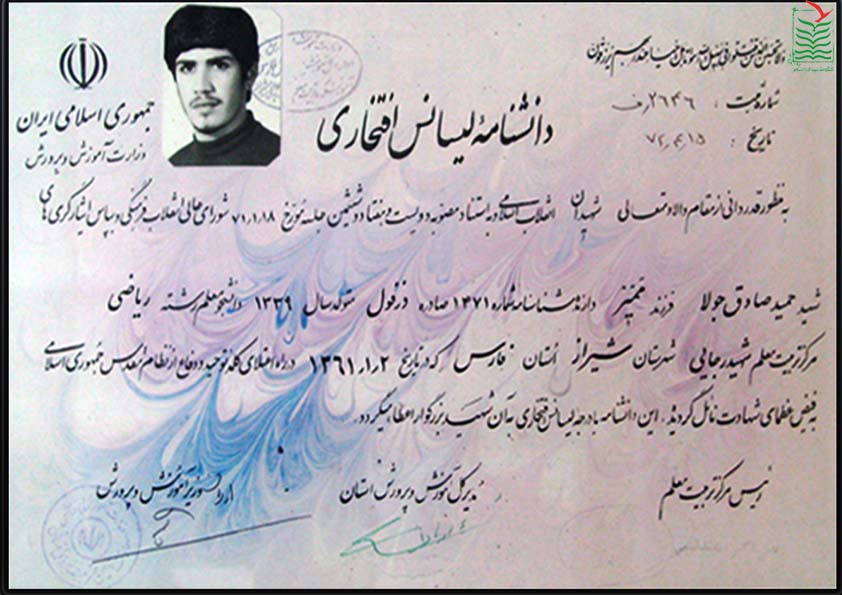 شماره ثبت : ۲۶۴۶/ف
تاریخ : ۷۲/۴/۱۵
جمهوری اسلامی ایران
وزارت آموزش و پرورش
دانشنامهٔ لیسانس افتخاری
به منظور قدردانی از مقام والا و متعالی شهیدان انقلاب اسلامی و به استناد مصوبه دویست و هفتاد و ششمین جلسه مورخ ۷۱.۱.۱۸ شورای عالی انقلاب فرهنگی و بپاس ایثارگری های
شهید حمید صادق جولا فرزند دارنده شناسنامه شماره ۱۴۷۱ صادره دزفول متولد سال ۱۳۳۹ دانشجو معلم رشته ریاضی
مرکز تربیت معلم شهید رجایی شهرستان شیراز استان فارس که در تاریخ ۱۳۶۱.۱.۲ در راه اعتلای کلمه توحید و دفاع از نظام مقدس جمهوری اسلامی
به فیض عظمای شهادت نائل گردید، این دانشنامه با درجه لیسانس افتخاری به آن شهید بزرگوار اعطا میگردد.
رئیس مرکز تربیت معلم
مدیر کل آموزش و پرورش استان
وزیر آموزش و پرورش